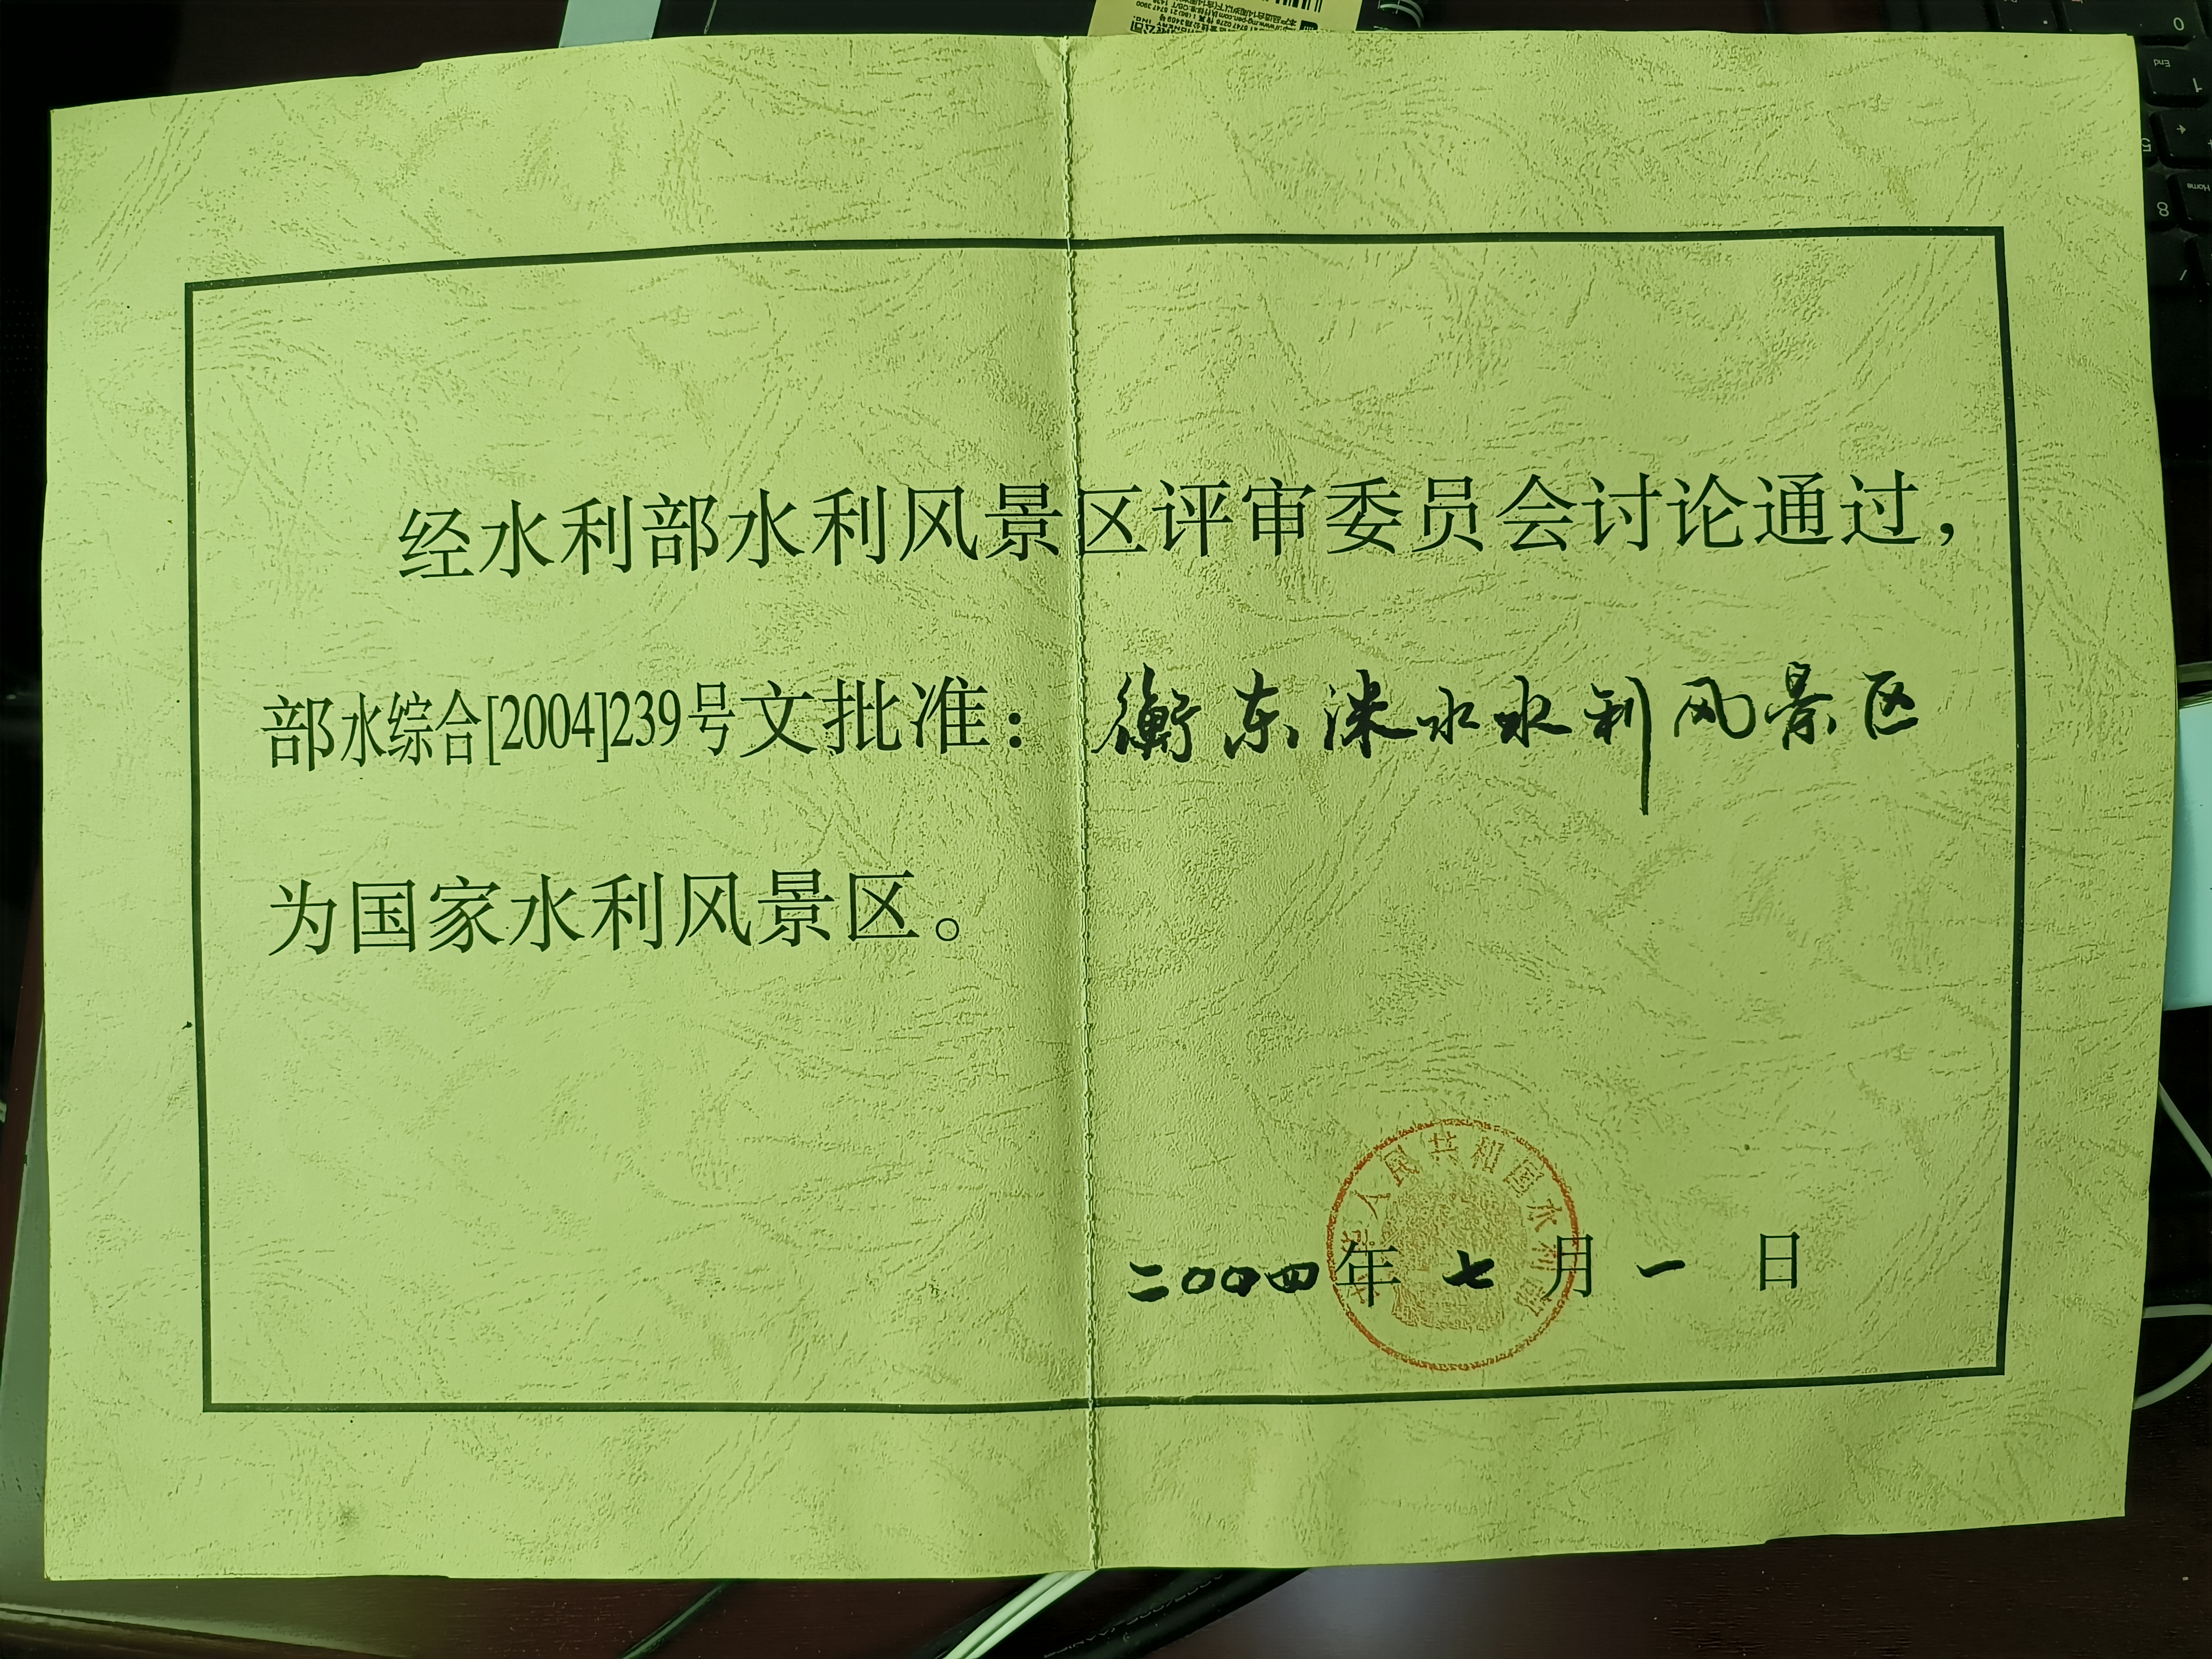 经水利部水利风景区评审委员会讨论通过，
部水综合[2004]239号文批准：衡东洣水水利风景区
为国家水利风景区。
中华人民共和国水利部
二〇〇四年七月一日
End
Home